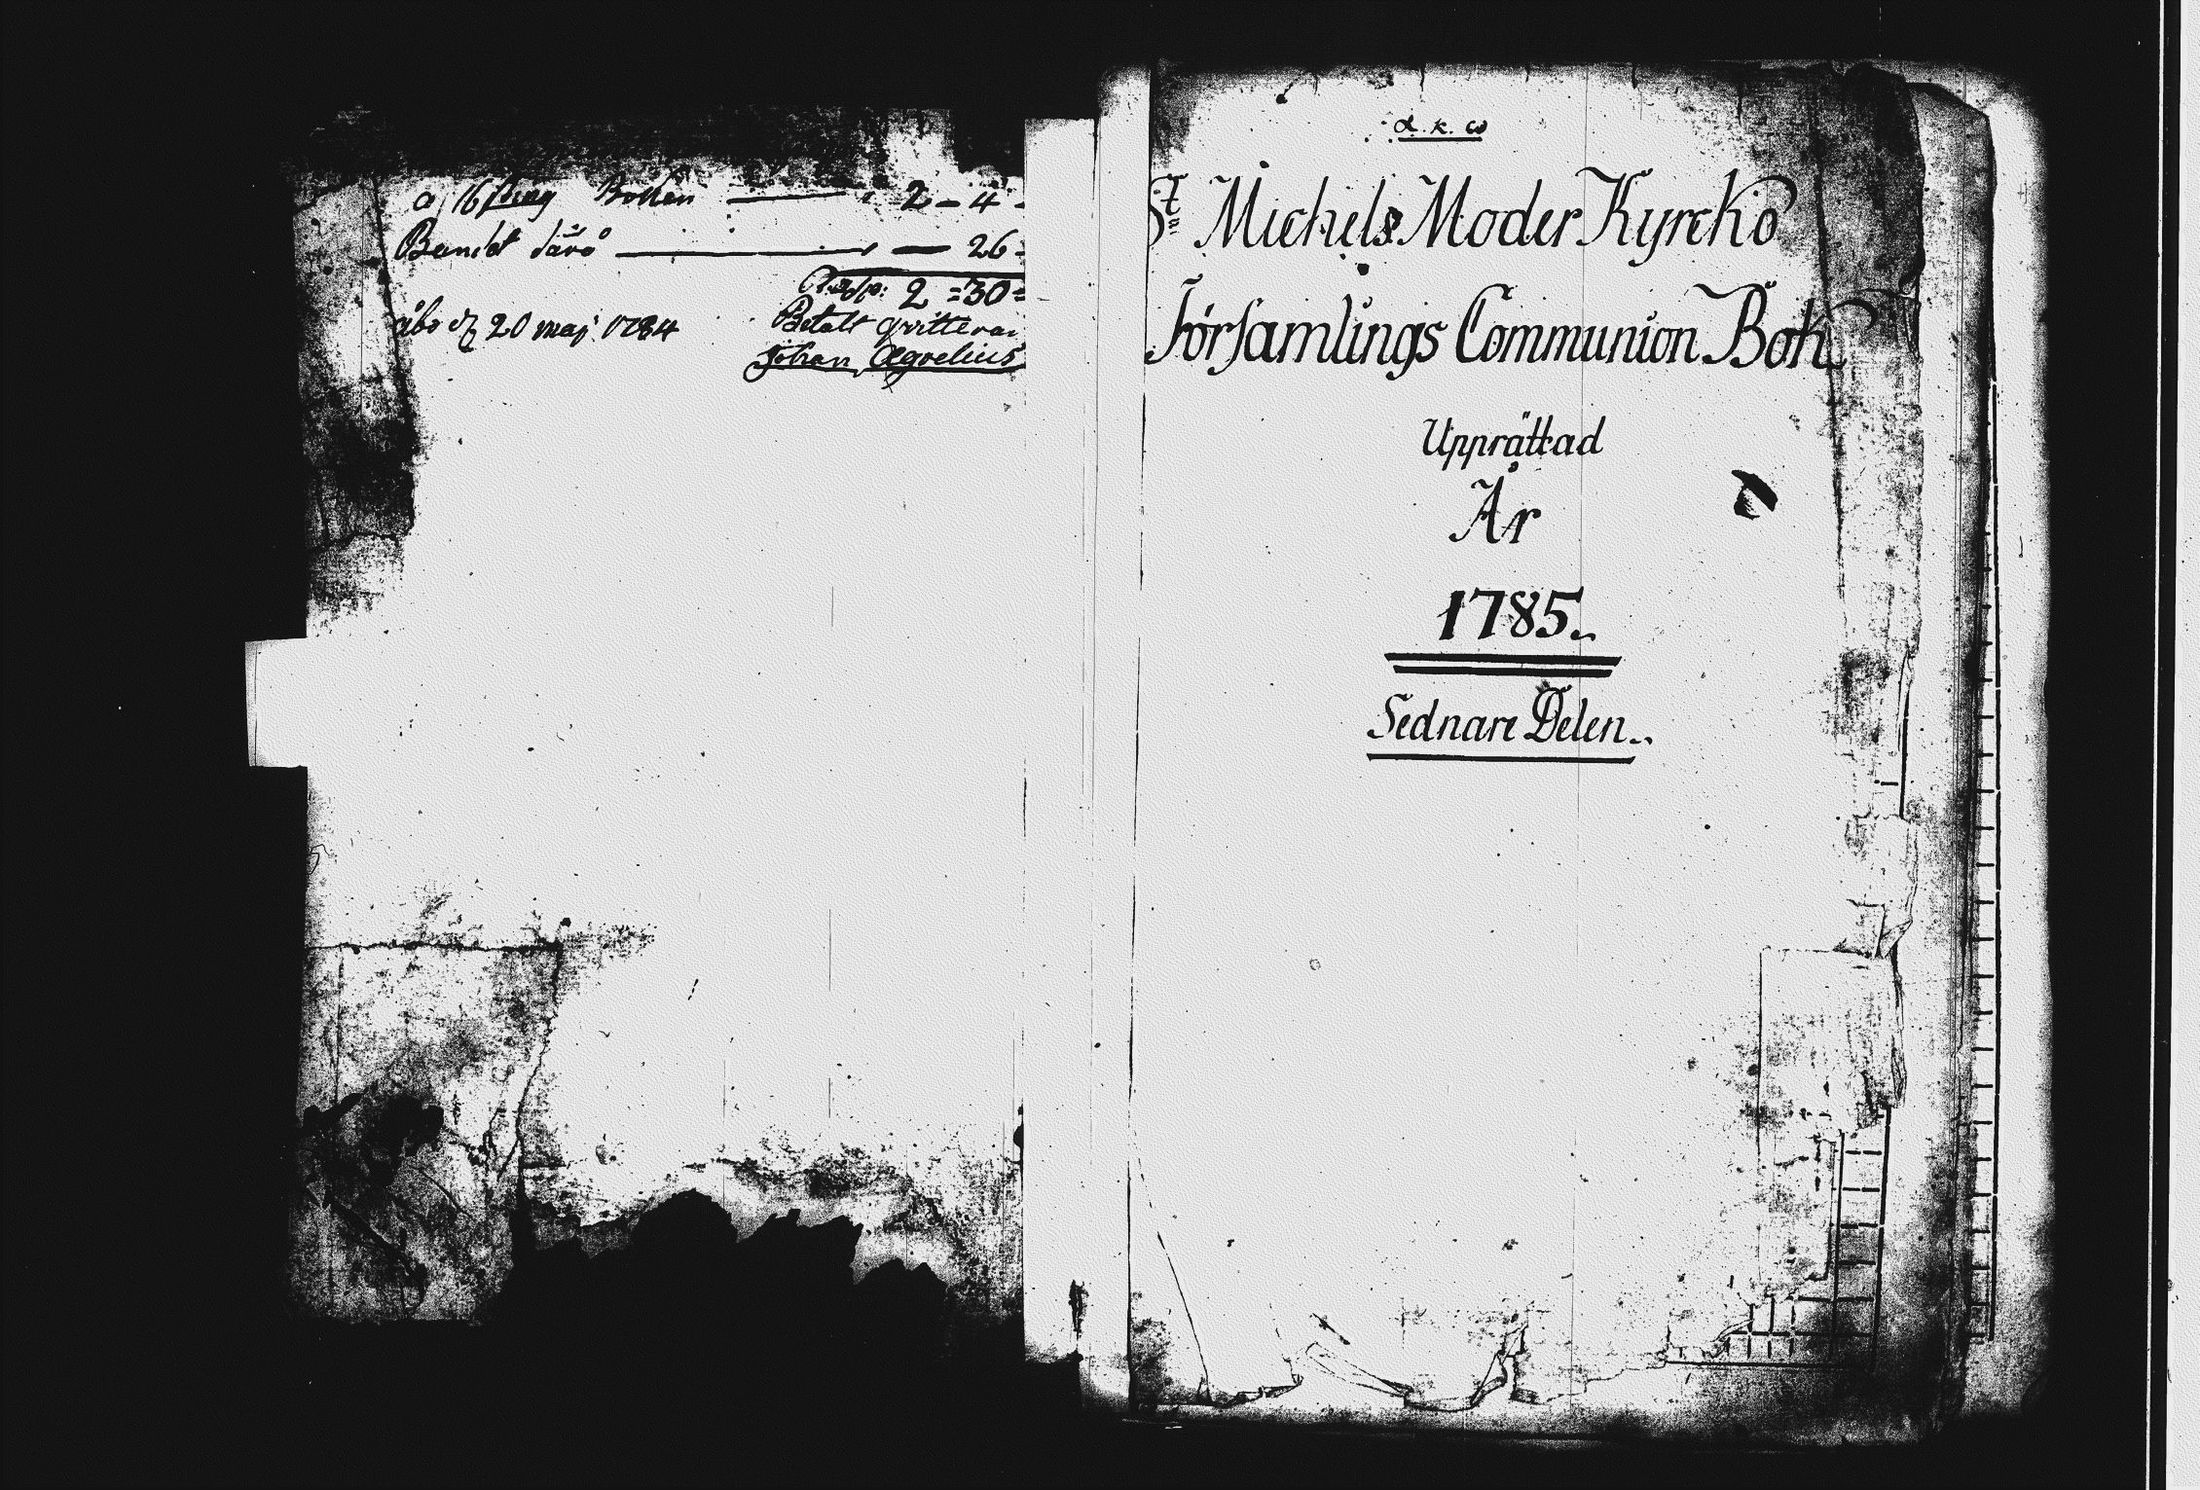 Bandet därå — 26
R:dsp: 2 = 30 =
åbo d 20 maj 1784
Betalt qvitteras
Johan Ægrelius
St Michels Moder Kyrcko
Församlings Communion Bok
Upprättad
År
1785.
Sednare Delen.